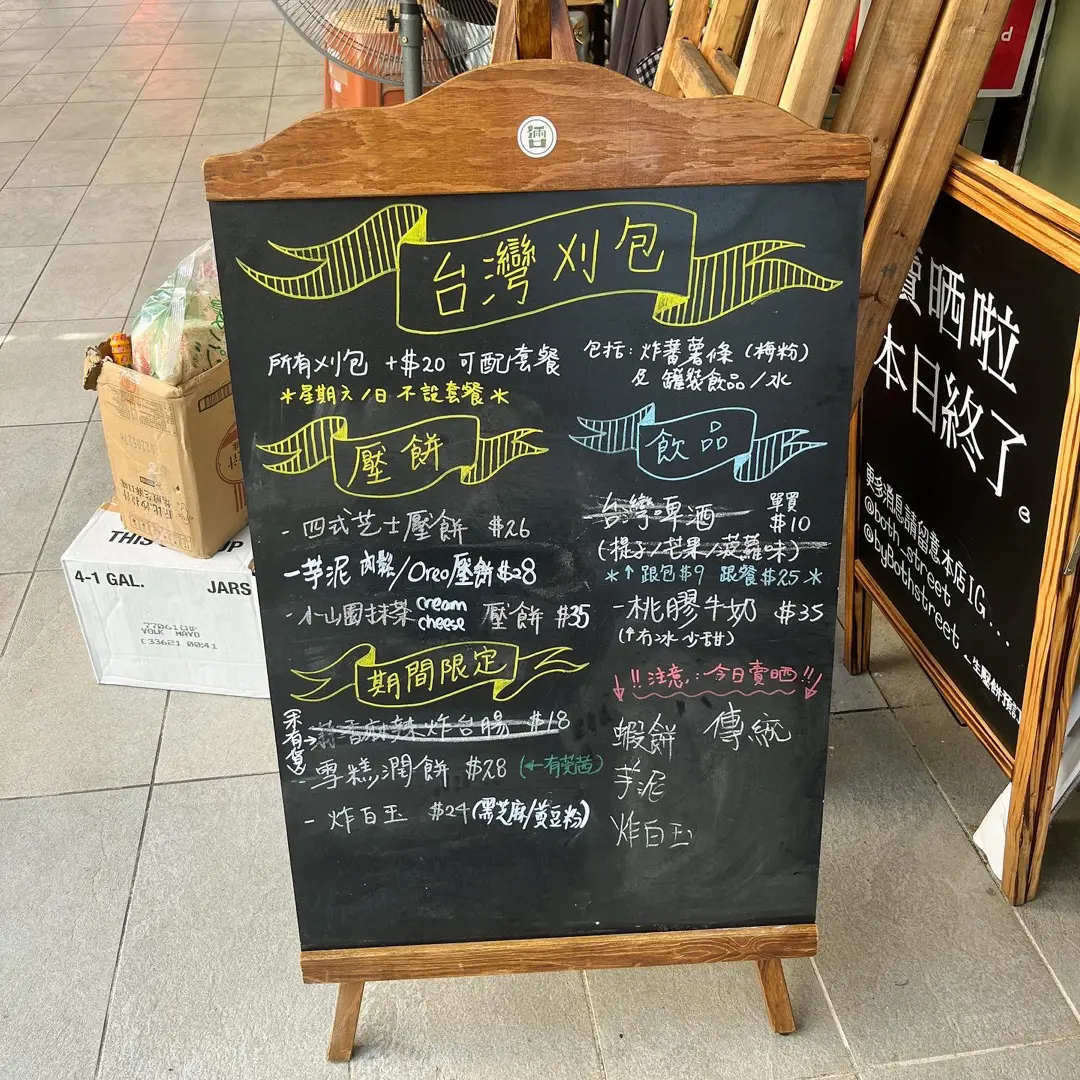 台灣刈包
所有刈包 +$20 可配套餐
*星期六/日 不設套餐*
包括: 炸蕃薯條 (梅粉)
及 罐裝飲品/水
壓餅
- 四式芝士壓餅 $26
- 芋泥 肉鬆/Oreo壓餅 $28
- 小山園抹茶 cream cheese 壓餅 $35
期間限定
(未有貨)→
麻辣炸台腸 $18
- 雪糕潤餅 $28 (←有芫茜)
- 炸白玉 $24 (黑芝麻/黃豆粉)
飲品
台灣啤酒 單買 $10
(提子/芒果/菠蘿味)
*↑跟包$9 跟餐$25*
- 桃膠牛奶 $35
(↑冇冰少甜)
!!注意:今日賣晒!!
蝦餅 傳統
芋泥
炸白玉
賣晒啦
本日終了。
更多消息請留意本店IG...
@both_street
@byBothstreet
THIS UP
4-1 GAL. JARS
77061CHP
YOLK MAYO
C33621 00:41